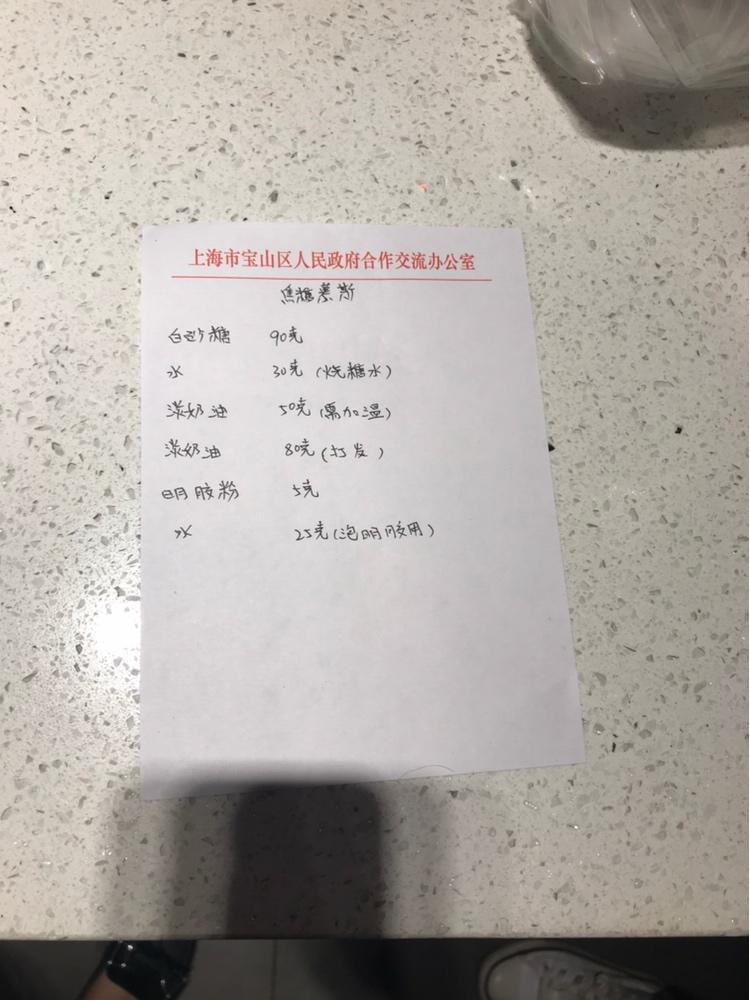 上海市宝山区人民政府合作交流办公室
焦糖慕斯
白砂糖 90克
水 30克(烧糖水)
淡奶油 50克(需加温)
淡奶油 80克(打发)
明胶粉 5克
水 25克(泡明胶用)